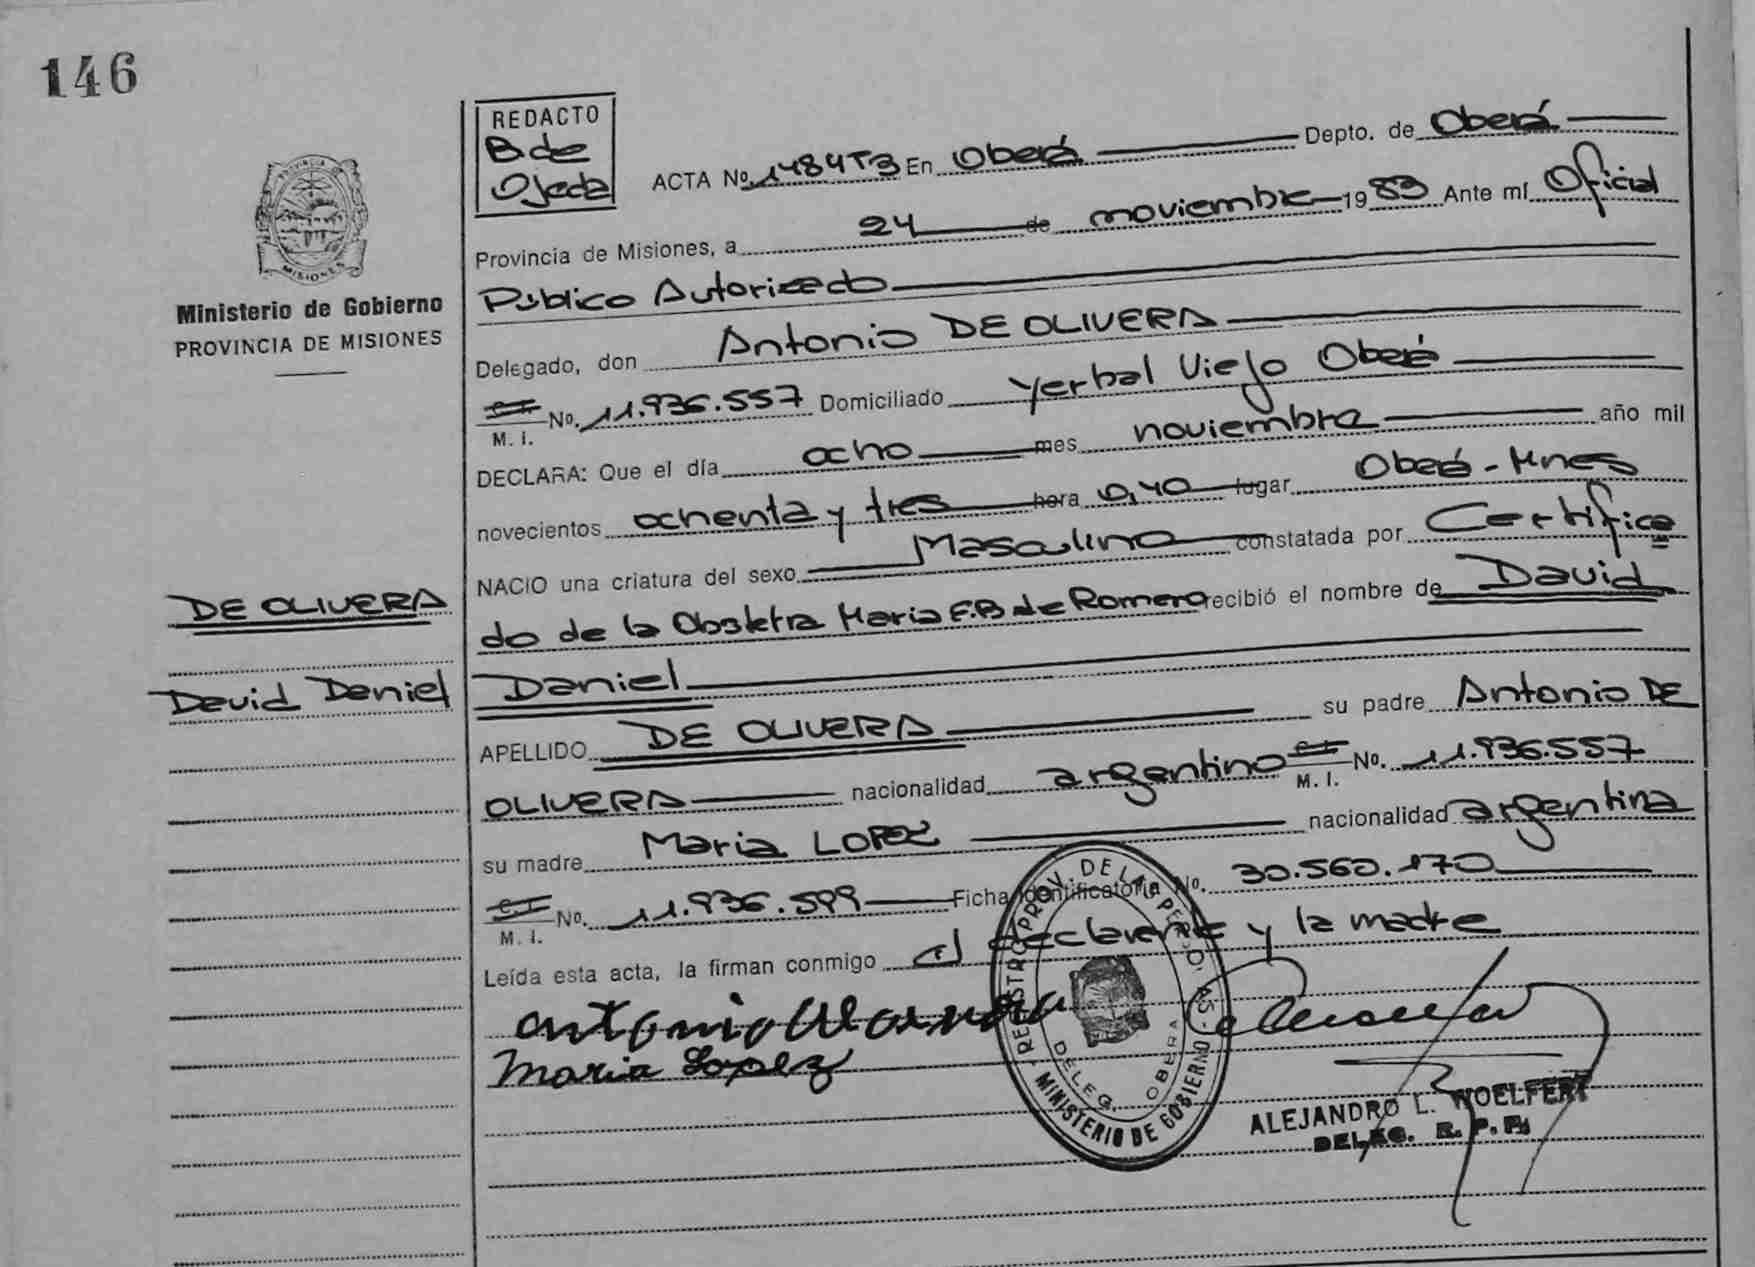 146
REDACTO
B de
Ojeda
ACTA No. 1484T3 En Oberá Depto. de Oberá
Provincia de Misiones, a 24 de noviembre 1983 Ante mí Oficial
Público Autorizado
Delegado, don Antonio DE OLIVERA
C.I. M. I. No. 11.936.557 Domiciliado Yerbal Viejo Oberá
DECLARA: Que el día ocho mes noviembre año mil
novecientos ochenta y tres hora 0,40 lugar Oberá - Mnes
NACIO una criatura del sexo Masculino constatada por Certifica
do de la Obstetra Maria E.B de Romero recibió el nombre de David
Daniel
APELLIDO DE OLIVERA su padre Antonio DE
OLIVERA nacionalidad argentino C.I. M. I. No. 11.936.557
su madre Maria LOPEZ nacionalidad argentina
C.I. M. I. No. 11.936.599 Ficha Identificatoria No. 30.560.170
Leída esta acta, la firman conmigo el declarante y la madre
antonio
Maria Lopez
ALEJANDRO L. WOELFERT
DELEG. R. P. P.
REGISTRO PROV. DE LAS PERSONAS
MINISTERIO DE GOBIERNO
DELEG. OBERA
PROVINCIA
MISIONES
Ministerio de Gobierno
PROVINCIA DE MISIONES
DE OLIVERA
David Daniel